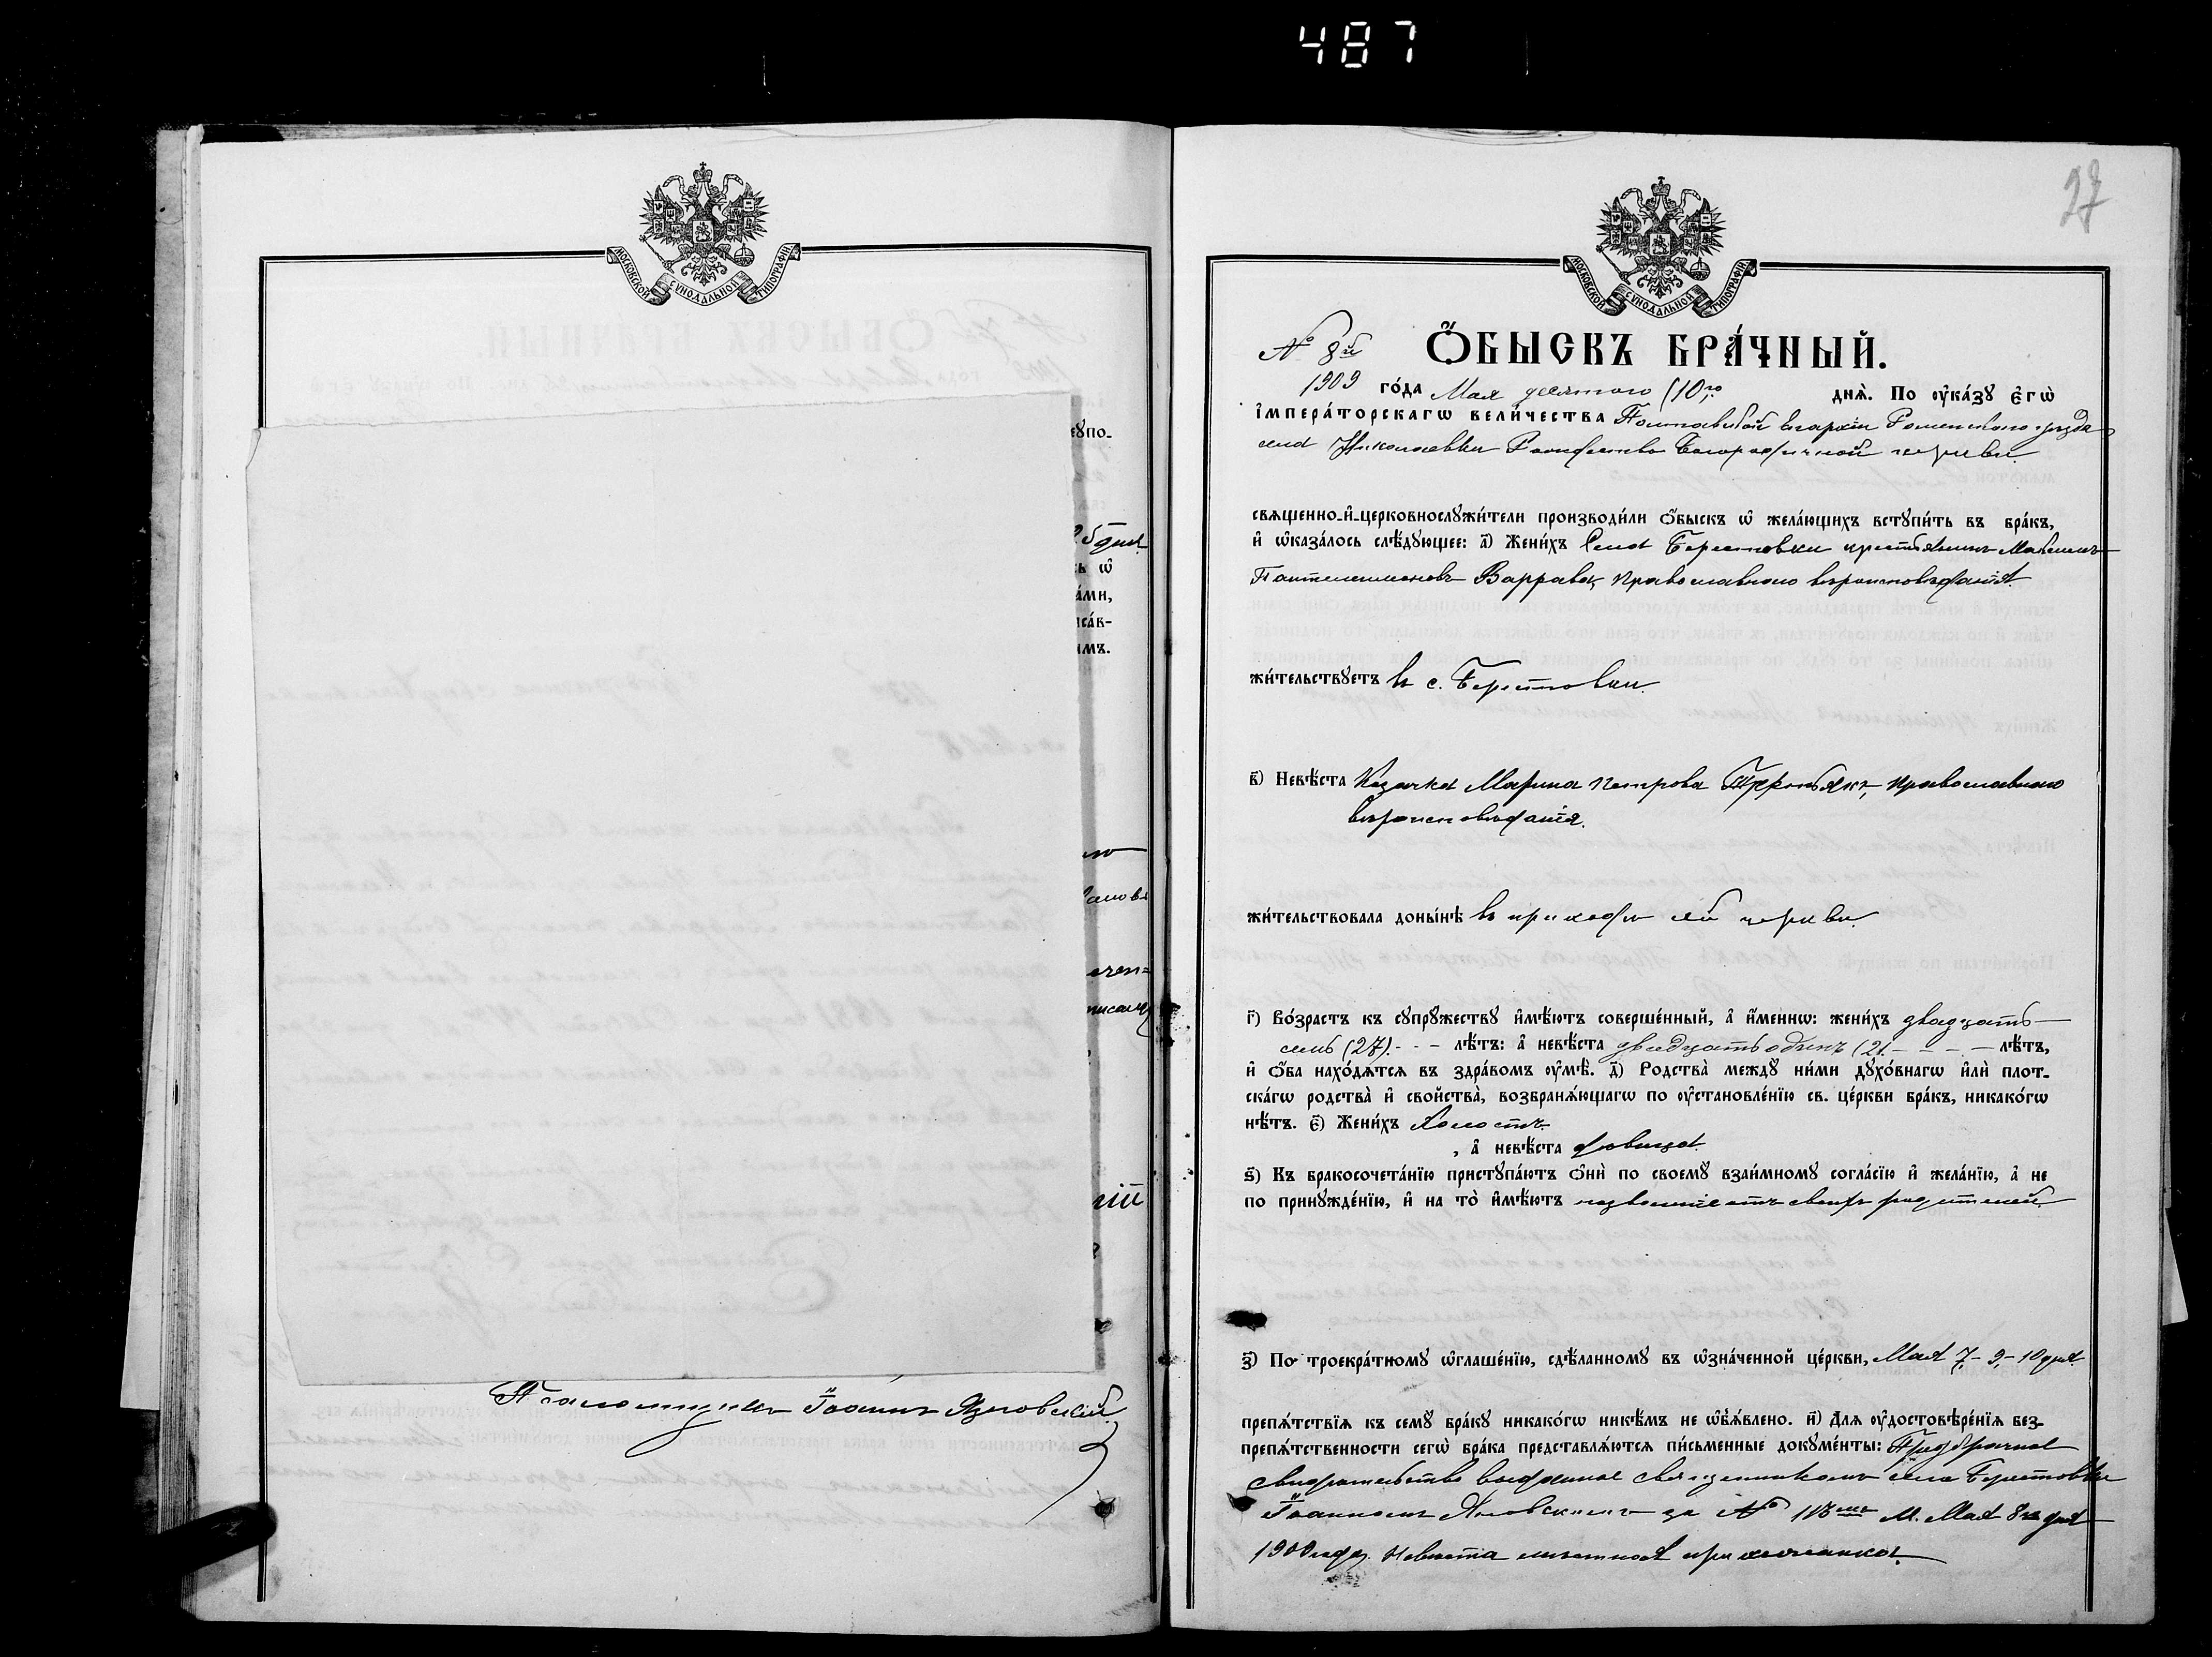 487
МОСКОВСКОЙ СУНОДАЛЬНОЙ ТИПОГРАФІИ
ꙋпо-
25 дня
ь ѿ
а́ми,
иса́в-
имъ.
Псаломщикъ Іоаннъ Язловскій
27
МОСКОВСКОЙ СУНОДАЛЬНОЙ ТИПОГРАФІИ
№ 8й ОБЫСКЪ БРА́ЧНЫЙ.
1909 го́да Мая десятаго (10го дня̀. По ᲂу҆ка́зꙋ є҆гѡ̀
і҆мпера́торскагѡ вели́чества Полтавской Епархіи Роменскаго уѣзда
села Николаевки Рождество Богородичной церкви
свяще́нно-и҆-церковнослꙋжи́тели производи́ли ѻ҆́быскъ ѡ҆ жела́ющихъ встꙋпи́ть въ бра́къ,
и҆ ѡ҆каза́лось слѣ́дꙋющее: а҃) Жени́хъ Села Берестовки крестьянинъ Максимъ
Пантелеимоновъ Баррава, православнаго вѣроисповѣданія.
жи́тельствꙋетъ въ с. Берестовки.
в҃) Невѣ́ста Козачка Марина Петрова православнаго
вѣроисповѣданія.
жи́тельствовала доны́нѣ въ приходѣ сей церкви.
г҃) Во́зрастъ къ сꙋпрꙋ́жествꙋ и҆мѣ́ютъ соверше́нный, а҆ и҆́меннѡ: жени́хъ двадцать
семь (27). - - - лѣ́тъ: а҆ невѣ́ста двадцать одинъ (21. - - - - лѣ́тъ,
и҆ ѻ҆́ба нахо́дятся въ здра́вомъ ᲂу҆мѣ̀. д҃) Родства̀ междꙋ̀ ни́ми дꙋхо́внагѡ и҆лѝ плот-
ска́гѡ родства̀ и҆ сво́йства, возбраня́ющагѡ по ᲂу҆становле́нїю св. це́ркви бра́къ, никако́гѡ
нѣ́тъ. є҃) Жени́хъ холостъ.
, а҆ невѣ́ста дѣвица.
ѕ҃) Къ бракосочета́нїю пристꙋпа́ютъ ѻ҆нѝ по своемꙋ̀ взаи́мномꙋ согла́сїю и҆ жела́нїю, а҆ не
по принꙋжде́нїю, и҆ на то̀ и҆мѣ́ютъ позволеніе отъ своихъ родителей.
з҃) По троекра́тномꙋ ѡ҆глаше́нїю, сдѣ́ланномꙋ въ ѡ҆зна́ченной це́ркви, Мая 7,- 9,- 10 дня
препя́тствїя къ семꙋ̀ бра́кꙋ никако́гѡ никѣ́мъ не ѡ҆б̾я́влено. и҃) Для ᲂу҆достовѣре́нїя без-
препя́тственности сегѡ̀ бра́ка представля́ются пи́сьменные докꙋме́нты: Предбрачное
свидѣтельство выданное священникомъ села Берестовки
Іоанномъ за № 118мъ м. Мая 8го дня
1909 года. Невѣста мѣстная прихожанка.